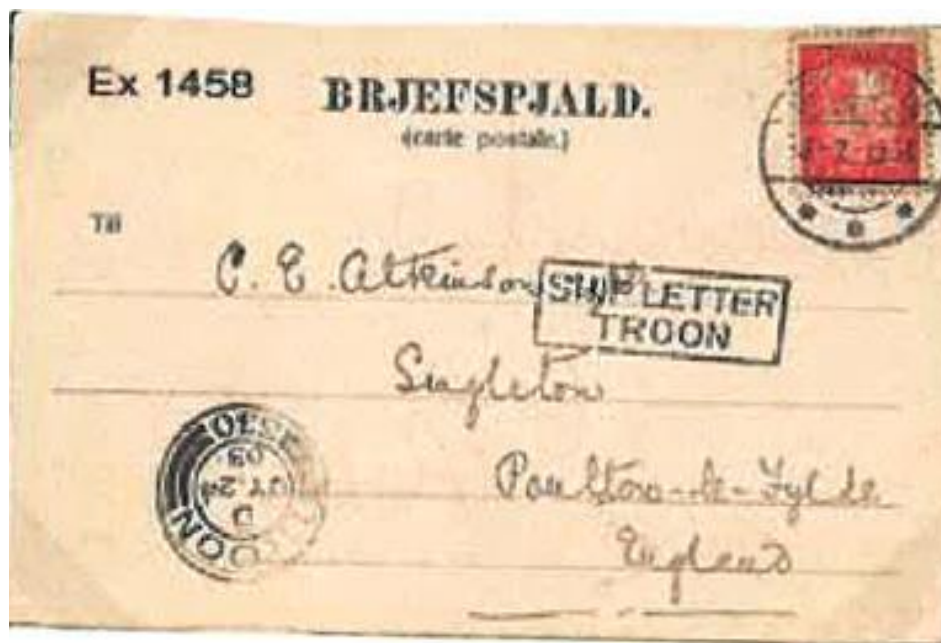 Ex 1458
BRJEFSPJALD.
(carte postale.)
Til
C. E. Atkinson
SHIP LETTER
TROON
Singleton
Poulton-le-Fylde
England
TROON
D
24
03